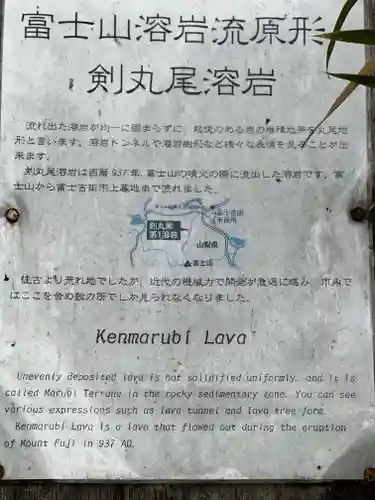 富士山溶岩流原形
剣丸尾溶岩
流れ出た溶岩が均一に固まらずに、起伏のある岩の堆積地帯を丸尾地
形と言います。溶岩トンネルや溶岩樹形など様々な表情を見ることが出
来ます。
剣丸尾溶岩は西暦937年、富士山の噴火の際に流出した溶岩です。富
士山から富士吉田市上暮地まで流れました。
富士吉田
市役所
剣丸尾
第1溶岩
山梨県
富士山
往古より荒れ地でしたが、近代の機械力で開発が急速に進み、市内で
はここを含め数カ所でしか見られなくなりました。
Kenmarubi Lava
Unevenly deposited lava is not solidified uniformly, and it is
called Marubi Terrane in the rocky sedimentary zone. You can see
various expressions such as lava tunnel and lava tree form.
Kenmarubi Lava is a lava that flowed out during the eruption
of Mount Fuji in 937 AD.